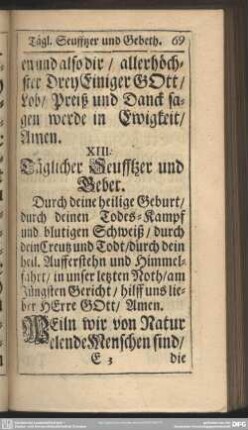 Tägl. Seufftzer und Gebeth. 69
en und also dir / allerhöch-
ster Drey Einiger GOtt /
Lob / Preiß und Danck sa-
gen werde in Ewigkeit /
Amen.
XIII.
Täglicher Seufftzer und
Geber.
Durch deine heilige Geburt /
durch deinen Todes-Kampf
und blutigen Schweiß / durch
dein Creutz und Todt / durch dein
heil. Aufferstehn und Himmel-
fahrt / in unser letzten Noth / am
Jüngsten Gericht / hilff uns lie-
ber HErre GOtt / Amen.
WEiln wir von Natur
elende Menschen sind /
E 3 die